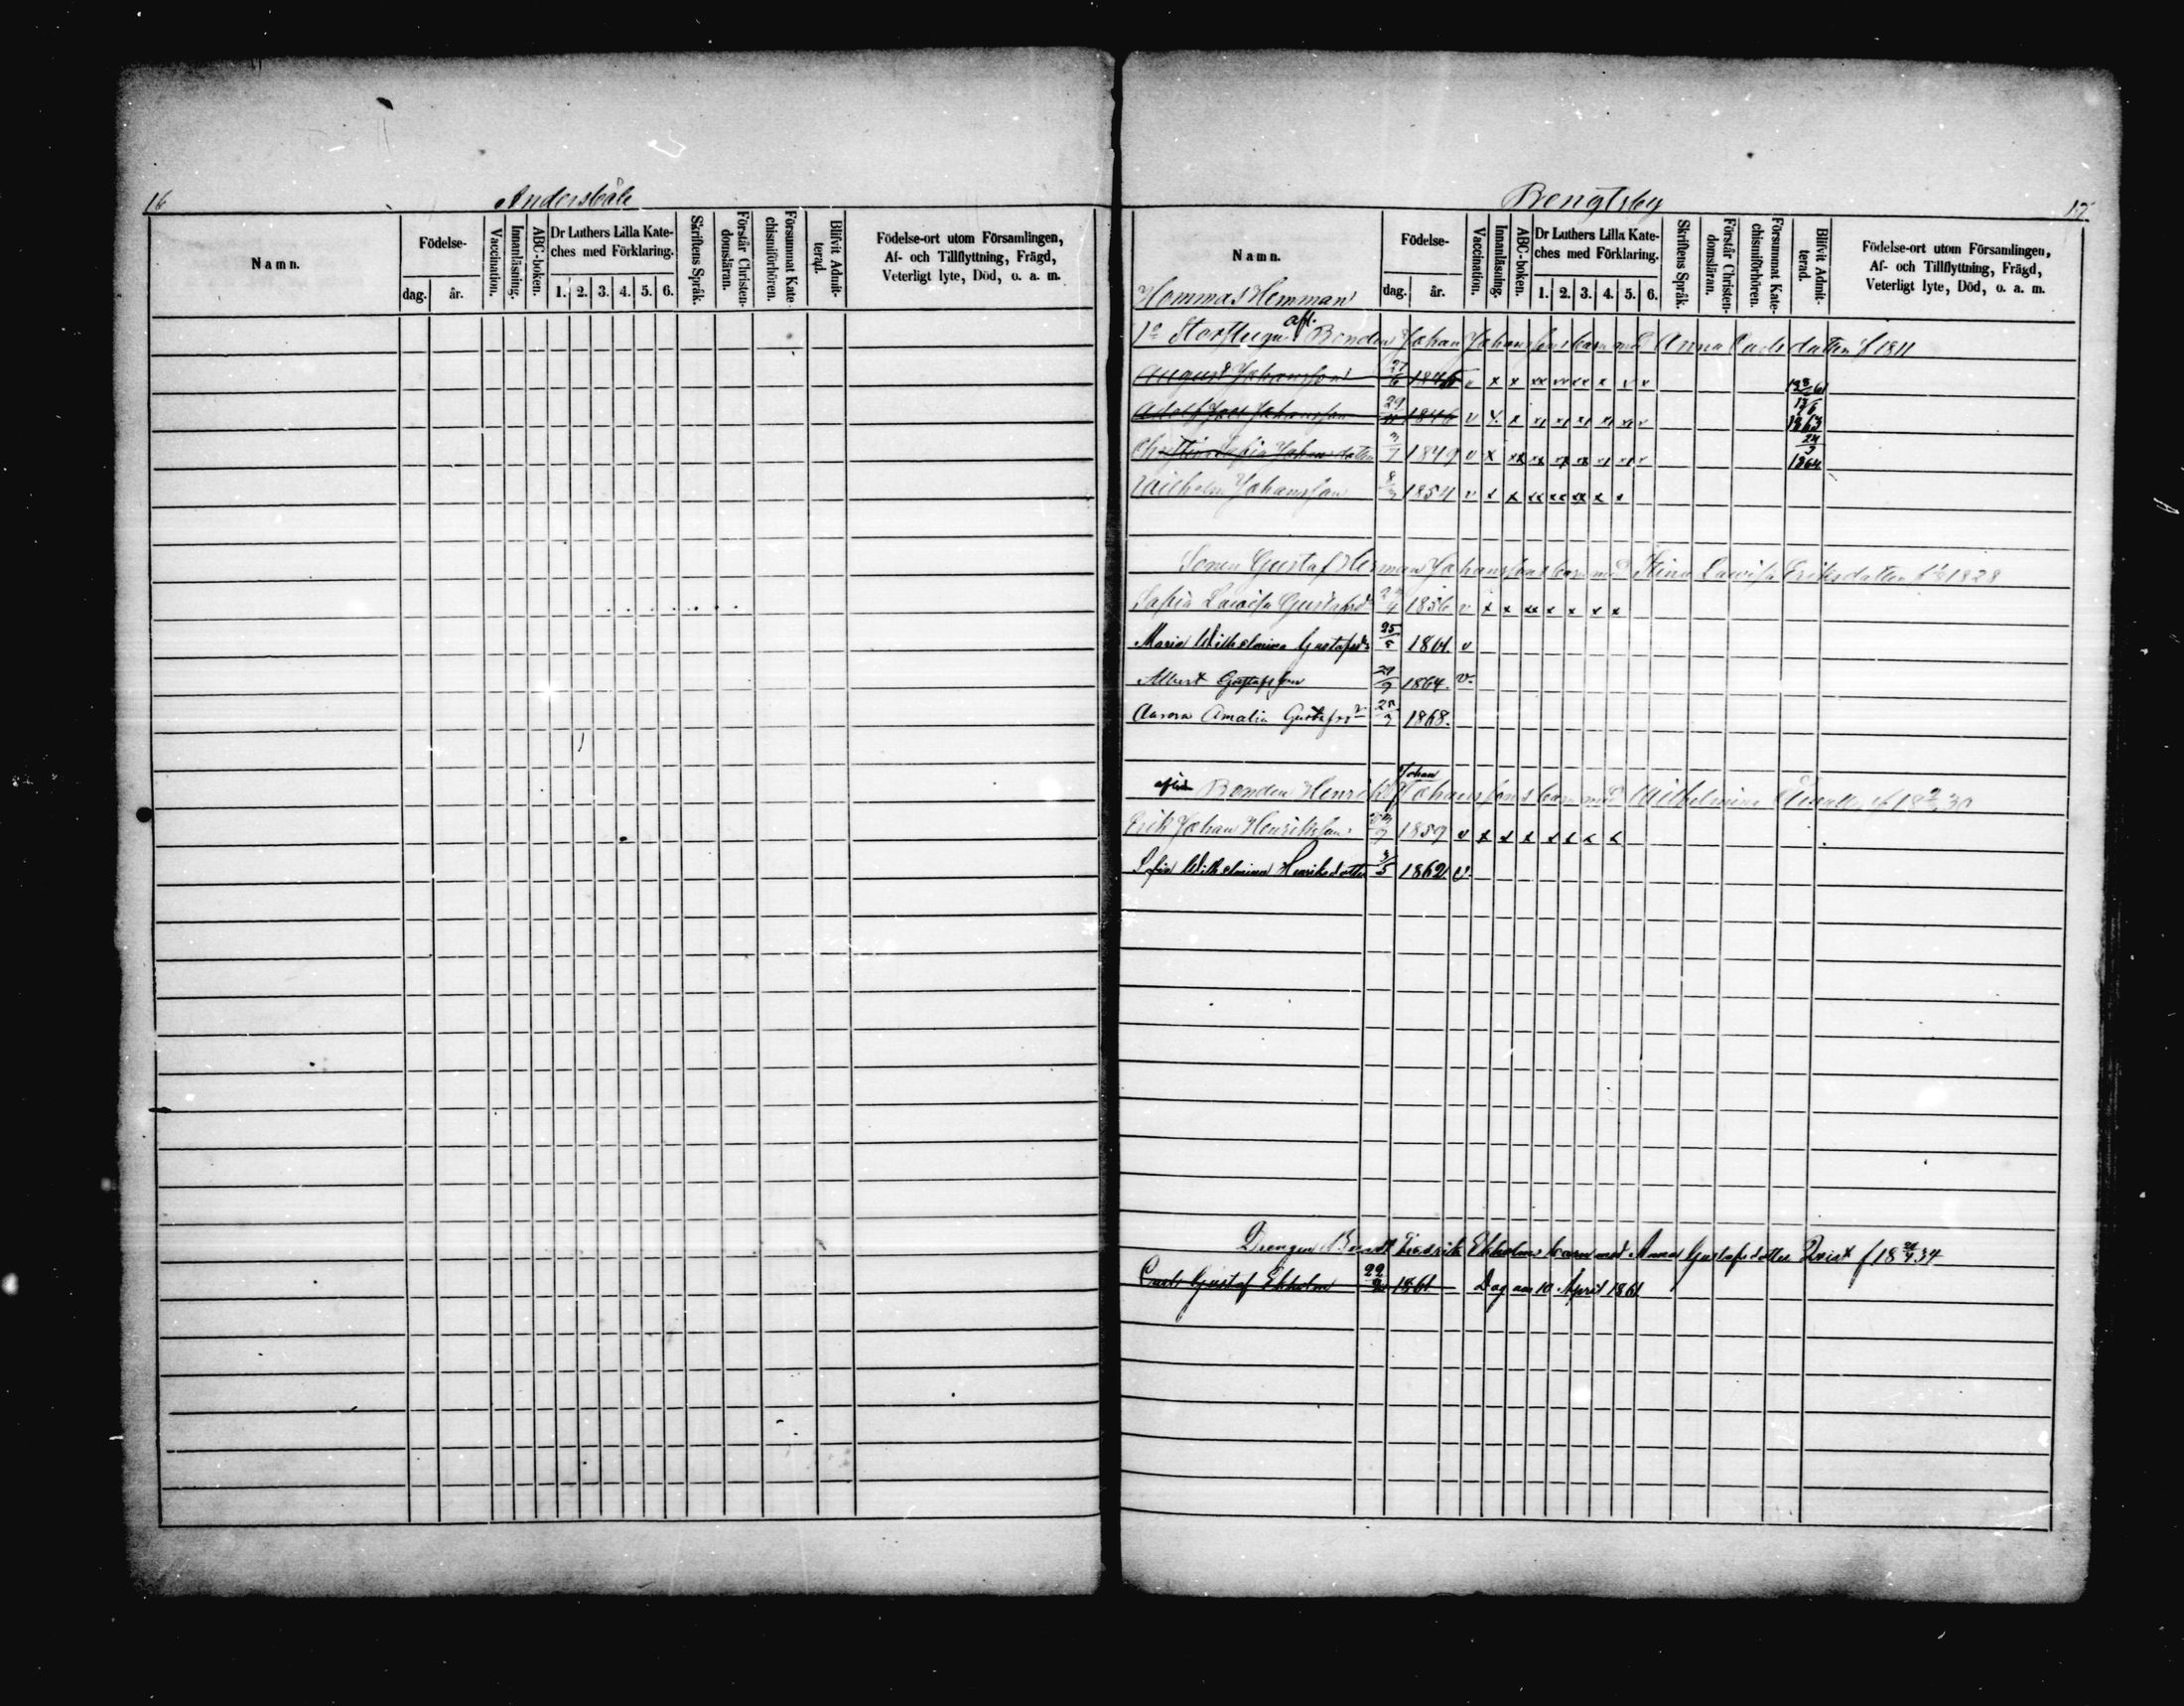 16
Andersböle
Namn.
Födelse-
dag. år.
Vaccination.
Innanläsning.
ABC-boken.
Dr Luthers Lilla Kate-
ches med Förklaring.
1. 2. 3. 4. 5. 6.
Skriftens Språk.
Förstår Christen-
domsläran.
Försummat Kate-
chismiförhören.
Blifvit Admit-
terad.
Födelse-ort utom Församlingen,
Af- och Tillflyttning, Frägd,
Veterligt lyte, Död, o. a. m.
Bengtsby
17
Namn.
Födelse-
dag. år.
Vaccination.
Innanläsning.
ABC-boken.
Dr Luthers Lilla Kate-
ches med Förklaring.
1. 2. 3. 4. 5. 6.
Skriftens Språk.
Förstår Christen-
domsläran.
Försummat Kate-
chismiförhören.
Blifvit Admit-
terad.
Födelse-ort utom Församlingen,
Af- och Tillflyttning, Frägd,
Veterligt lyte, Död, o. a. m.
Hommas Hemman
afl. Bonden Johan Johanssons barn med Anna datter f 1811
August Johansson 27/6 v x x xx
Johansson 1846 v x x
Johansdatter 3/7 1849 v x xx 24/3 1864
Wilhelm Johansson 8/3 1854 v x x xx xx xx x x
Sonen Gustaf Herman Johanssons barn med Stina Lovisa Eriksdatter 1828
Sofia Lovisa Gustafsdr 1856 v x x xx x x x x
Maria Wilhelmina Gustafsdr 25/5 1861. v
Albert Gustafsson 29/9 1864. v.
Aurora Amalia Gustafsdr 1868.
aflidn Bonden Henrik Johan Johanssons barn med Wilhelmina
Erik Johan Henriksson 1859 v x x x x x x x
Sofia Wilhelmina Henriksdotter 3/5 1862 v
Drengen Berndt Fredrik Ekholms barn med Anna Gustafsdotter Qvist f 18 34
Carl Gustaf Ekholm 22/2 1861 Dog den 10 April 1861